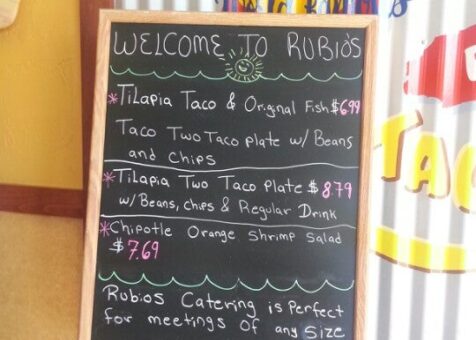 WELCOME TO RUBIO'S
*TiLapia Taco & Original Fish $6.99
Taco Two Taco plate w/ Beans
and Chips
*TiLapia Two Taco Plate $8.79
w/ Beans, chips & Regular Drink
*Chipotle Orange Shrimp Salad
$7.69
Rubios Catering is Perfect
for meetings Of any Size
TAC